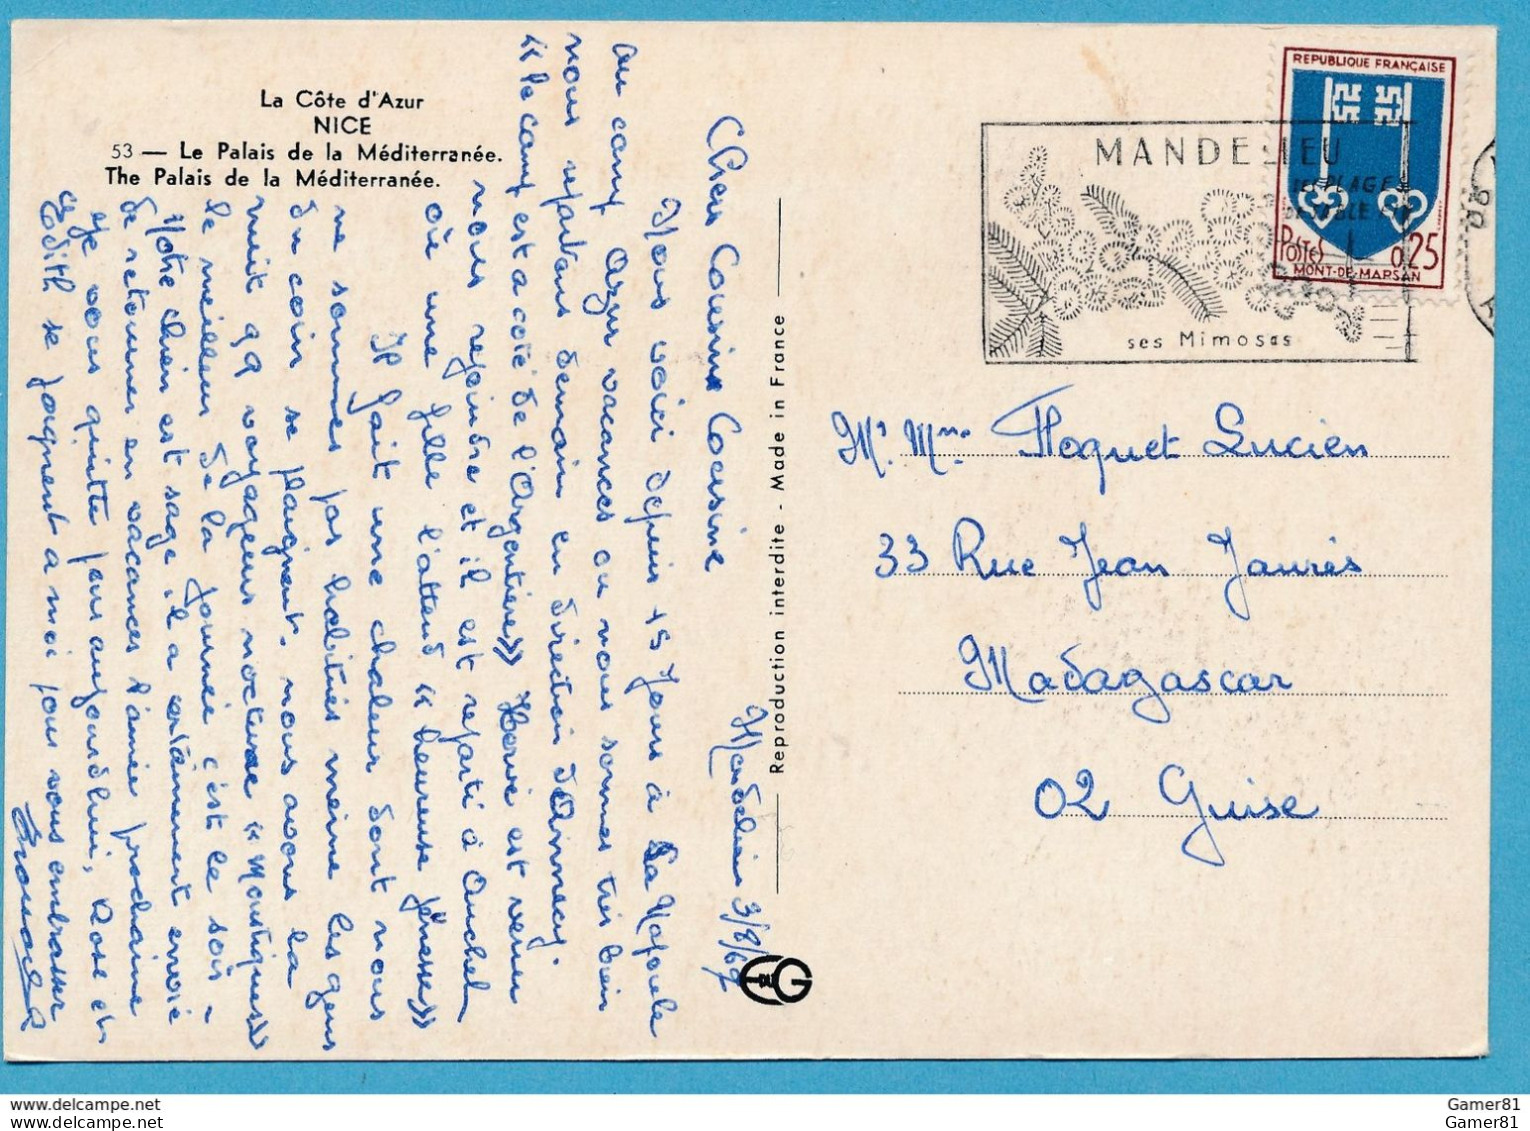 La Côte d'Azur
NICE
53 — Le Palais de la Méditerranée.
The Palais de la Méditerranée.
Mandelieu 3/8/67
Chers Cousins Cousine
Nous voici depuis 15 Jours à La Napoule
au camp Azur vacances ou nous sommes très bien
nous repartons demain en direction d'Annecy
« le camp est a coté de l'Argentière » Hervé est venu
nous rejoindre et il est reparti à Auchel
où une fille l'attend « heureuse jeunesse »
Il fait une chaleur dont nous
ne sommes pas habitués meme les gens
du coin se plaignent. nous avons la
nuit qq voyageurs nocturne « Moustiques »
le meilleur de la journée c'est le soir -
Notre chien est sage il a certainement envie
de retourner en vacances l'année prochaine
Je vous quitte pour aujourd'hui, Rose et
Edith se joignent a moi pour vous embrasser
Reproduction interdite - Made in France
MANDELIEU
SES PLAGES
DE SABLE FIN
ses Mimosas
REPUBLIQUE FRANÇAISE
POSTES
0,25
MONT-DE-MARSAN
06
Mr Mme Floquet Lucien
33 Rue Jean Jaurès
Madagascar
02 Guise
Gamer81
Gamer81